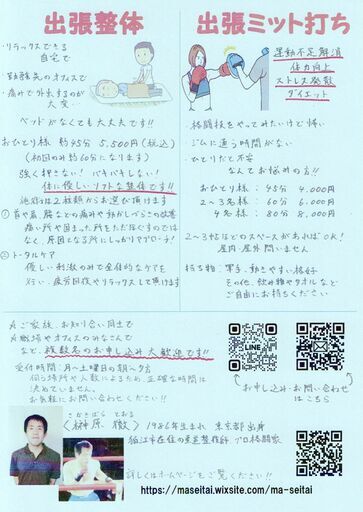 出張整体
・リラックスできる
自宅で
・勤務先のオフィスで
・痛みで外出するのが
大変…
ベッドがなくても大丈夫です!!
おひとり様 約45分 5,500円(税込)
(初回のみ約60分になります)
強く押さない! バキバキしない!
体に優しいソフトな整体です!!
施術は2種類からお選び頂けます
①首や肩、腰などの痛みや動かしづらさの改善
痛い所や困まった所をただほぐすのでは
なく、原因となる所にしっかりアプローチ!
②トータルケア
優しい刺激のみで全体的なケアを
行い、疲労回復やリラックスして頂けます
出張ミット打ち
運動不足解消
体力向上
ストレス発散
ダイエット
・格闘技をやってみたいけど怖い
・ジムに通う時間がない
・ひとりだと不安
なんてお悩みの方!!
おひとり様: 45分 4,000円
2〜3名様: 60分 6,000円
4名様: 80分 8,000円
2〜3帖ほどのスペースがあればOK!
屋内・屋外問いません
持ち物: 軍手、動きやすい格好
その他、飲み物やタオルなど
ご自由にお持ちください
☆ご家族、お知り合い同士で
☆職場やオフィスのみなさんで
など、複数名のお申し込み大歓迎です!!
受付時間: 月〜土曜日の朝〜夕方
伺う場所や人数によるため、正確な時間は
決めていません。
お気軽にお問い合わせください!!
LINE
お申し込み・お問い合わせ
はこちら
さかきばら とおる
〈榊原 徹〉 1986年生まれ 東京都出身
狛江市在住の柔道整復師 プロ格闘家
詳しくはホームページをご覧ください!!
https://maseitai.wixsite.com/ma-seitai